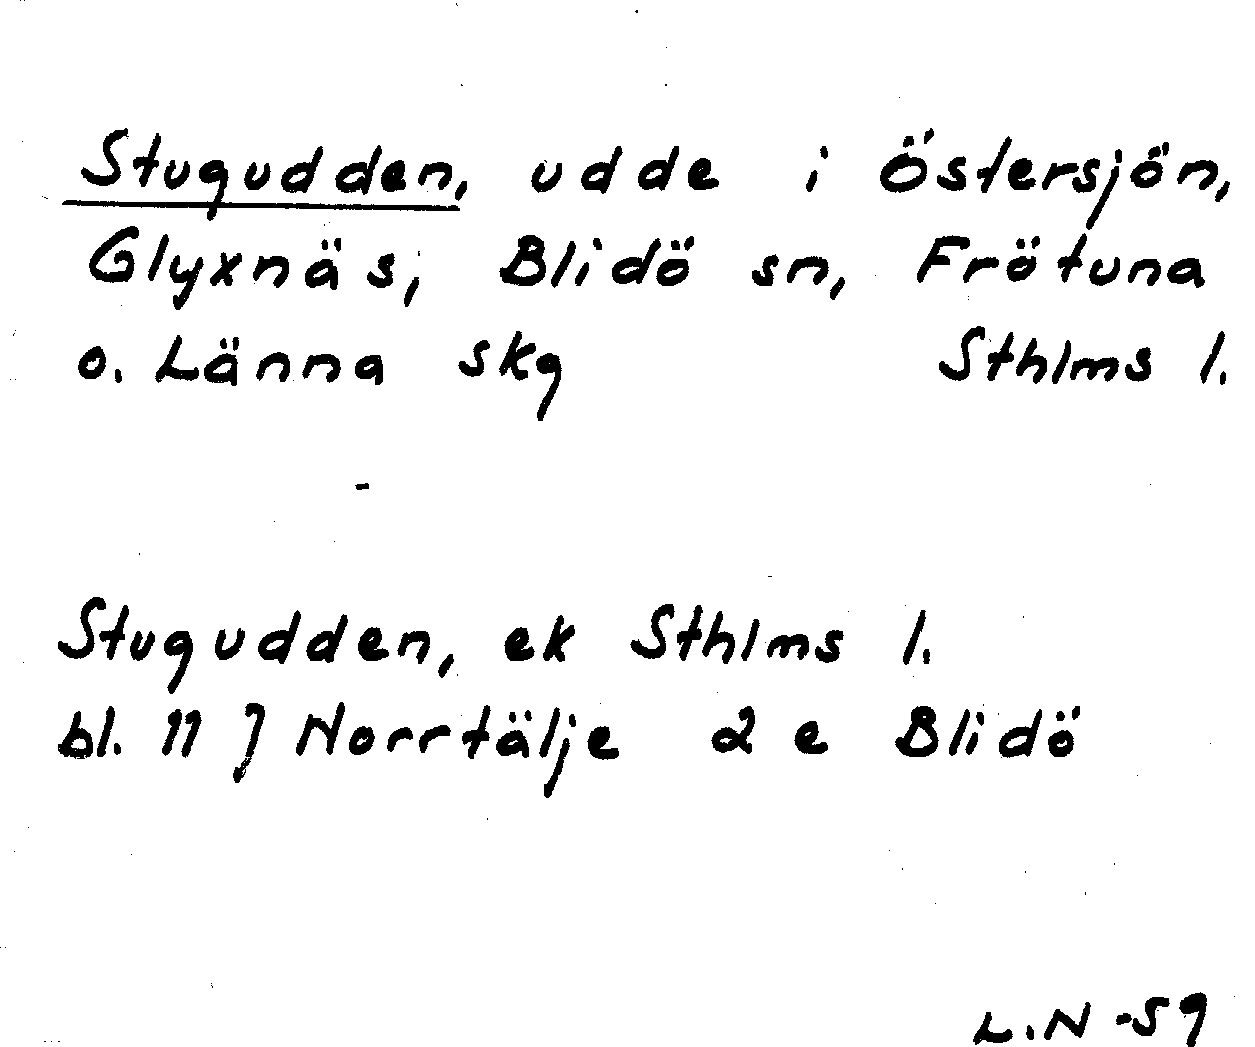 Stugudden, udde i Östersjön,
Glyxnäs, Blidö sn, Frötuna
o. Länna skg Sthlms l.
-
Stugudden, ek Sthlms l.
bl. 11 J Norrtälje 2 e Blidö
L.N -59